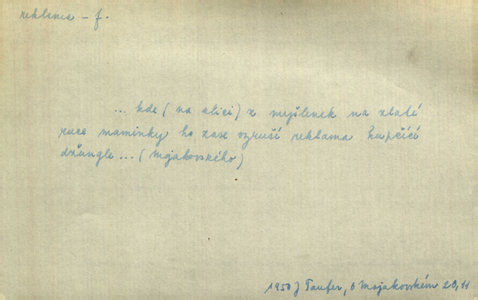 reklama – f.
... kde (na ulici) z myšlenek na zlaté
ruce maminky ho zase vyruší reklama kupčící
džungle ... (Majakovského)
1950 J Taufer, O Majakovském 20, 11